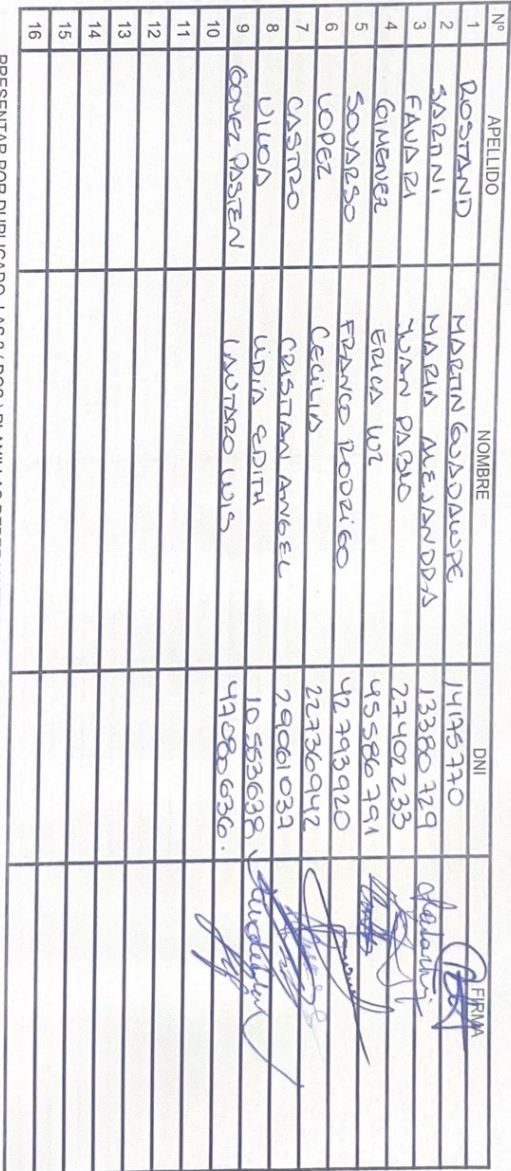 Nº APELLIDO NOMBRE DNI FIRMA
1 ROSTAND MARTIN GUADALUPE 14175770
2 SARTNI MARIA ALEJANDRA 13380729
3 FAVARI JUAN PABLO 27402233
4 GIMENEZ ERICA LUZ 45586791
5 SOUARSO FRANCO RODRIGO 42793920
6 LOPEZ CECILIA 22736942
7 CASTRO CRISTIAN ANGEL 29061037
8 ULLOA LIDIA EDITH 10553638
9 GOMEZ PASTEN LAUTARO LUIS 47080636.
10
11
12
13
14
15
16
PRESENTAR POR DUPLICADO LAS 2 (DOS) PLANILLAS